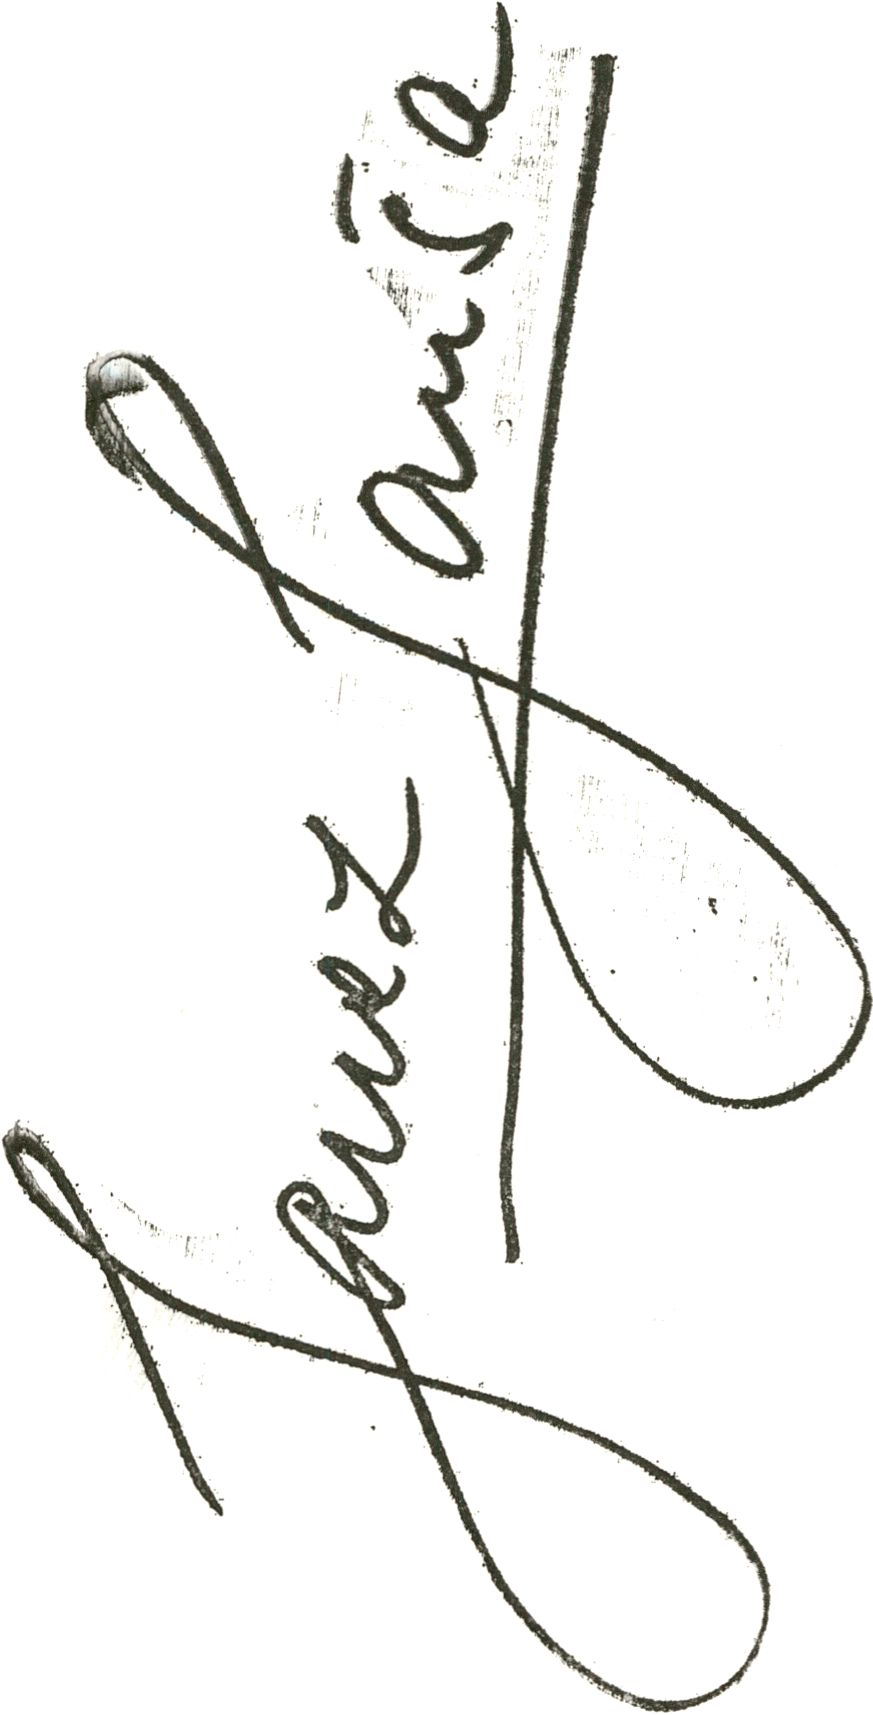 Janez Janša